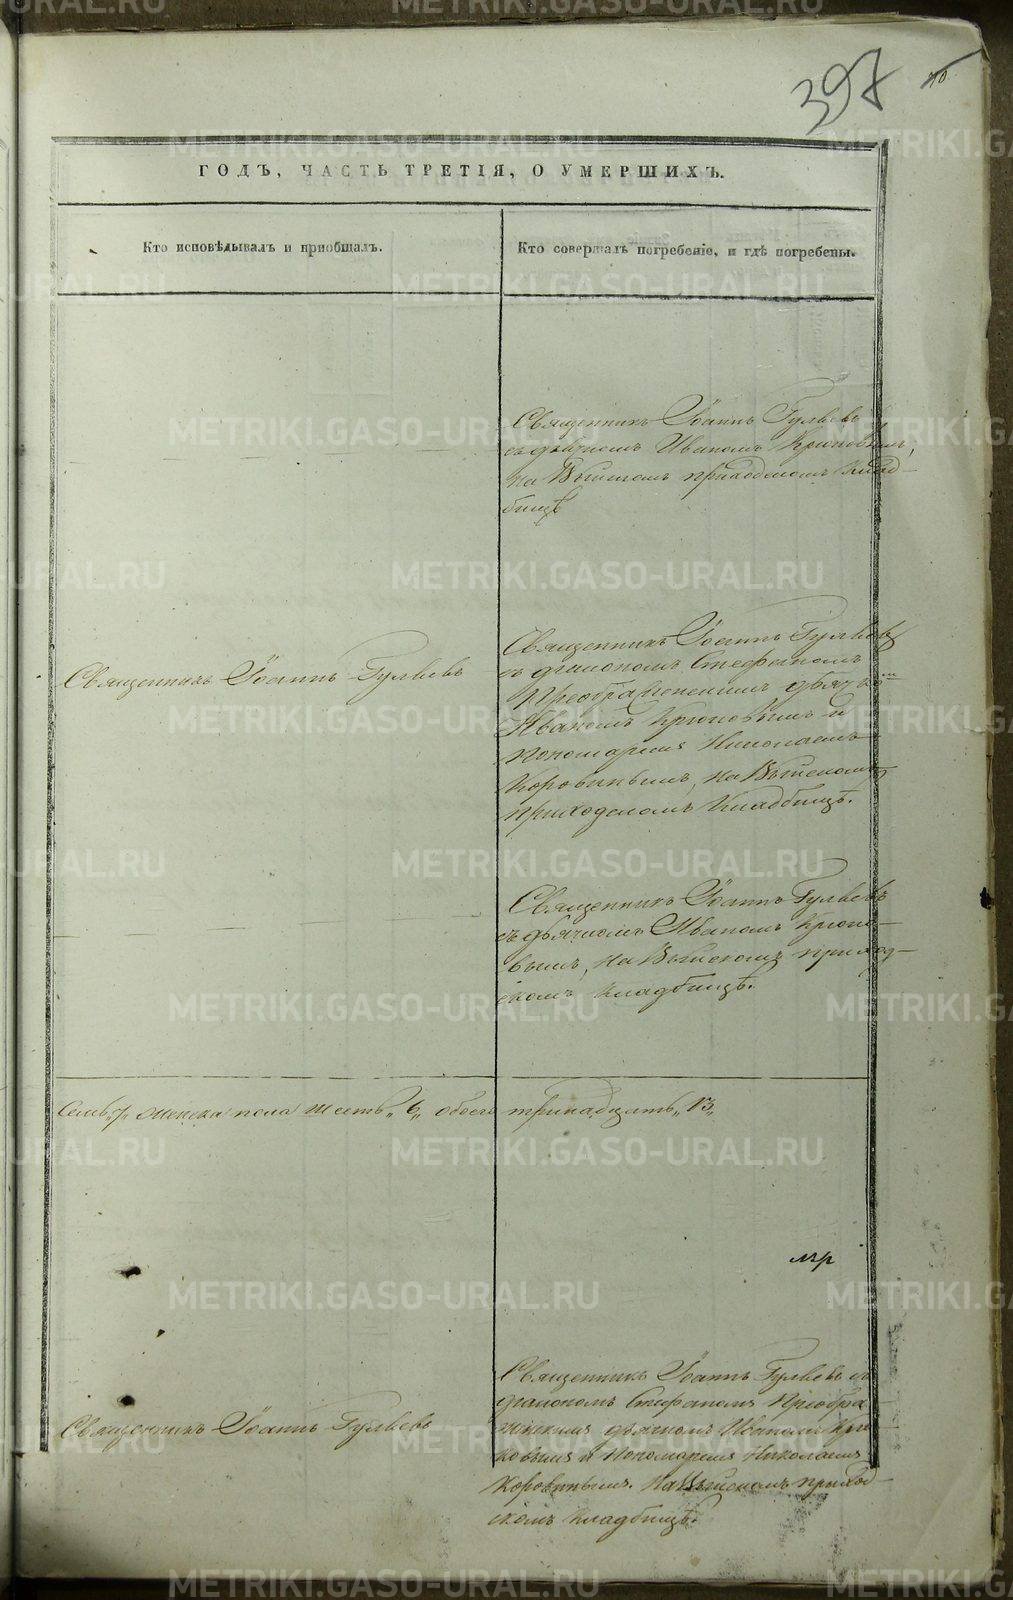 397
ГОДЪ, ЧАСТЬ ТРЕТІЯ, О УМЕРШИХЪ.
Кто исповѣдывалъ и пріобщалъ.
Кто совершалъ погребеніе, и гдѣ погребены.
Священникъ Іоаннъ Гуляевъ
съ дьячкомъ Иваномъ Крюковымъ,
на Выйскомъ приходскомъ клад-
бищѣ
Священникъ Іоаннъ Гуляевъ
Священникъ Іоаннъ Гуляевъ
съ діакономъ Стефаномъ
Преображенскимъ дьячкомъ
Иваномъ Крюковымъ и
пономаремъ Николаемъ
Коровинымъ, на Выйскомъ
приходскомъ кладбищѣ.
Священникъ Іоаннъ Гуляевъ
съ дьячкомъ Иваномъ Крюко-
вымъ, на Выйскомъ приход-
скомъ кладбищѣ.
семь „7„ женска пола шесть „6„ обоего тринадцать „13„
Священникъ Іоаннъ Гуляевъ
Священникъ Іоаннъ Гуляевъ съ
діакономъ Стефаномъ Преобра-
женскимъ дьячкомъ Иваномъ Крю-
ковымъ и пономаремъ Николаемъ
Коровинымъ. На Выйскомъ приход-
скомъ кладбищѣ.
METRIKI.GASO-URAL.RU